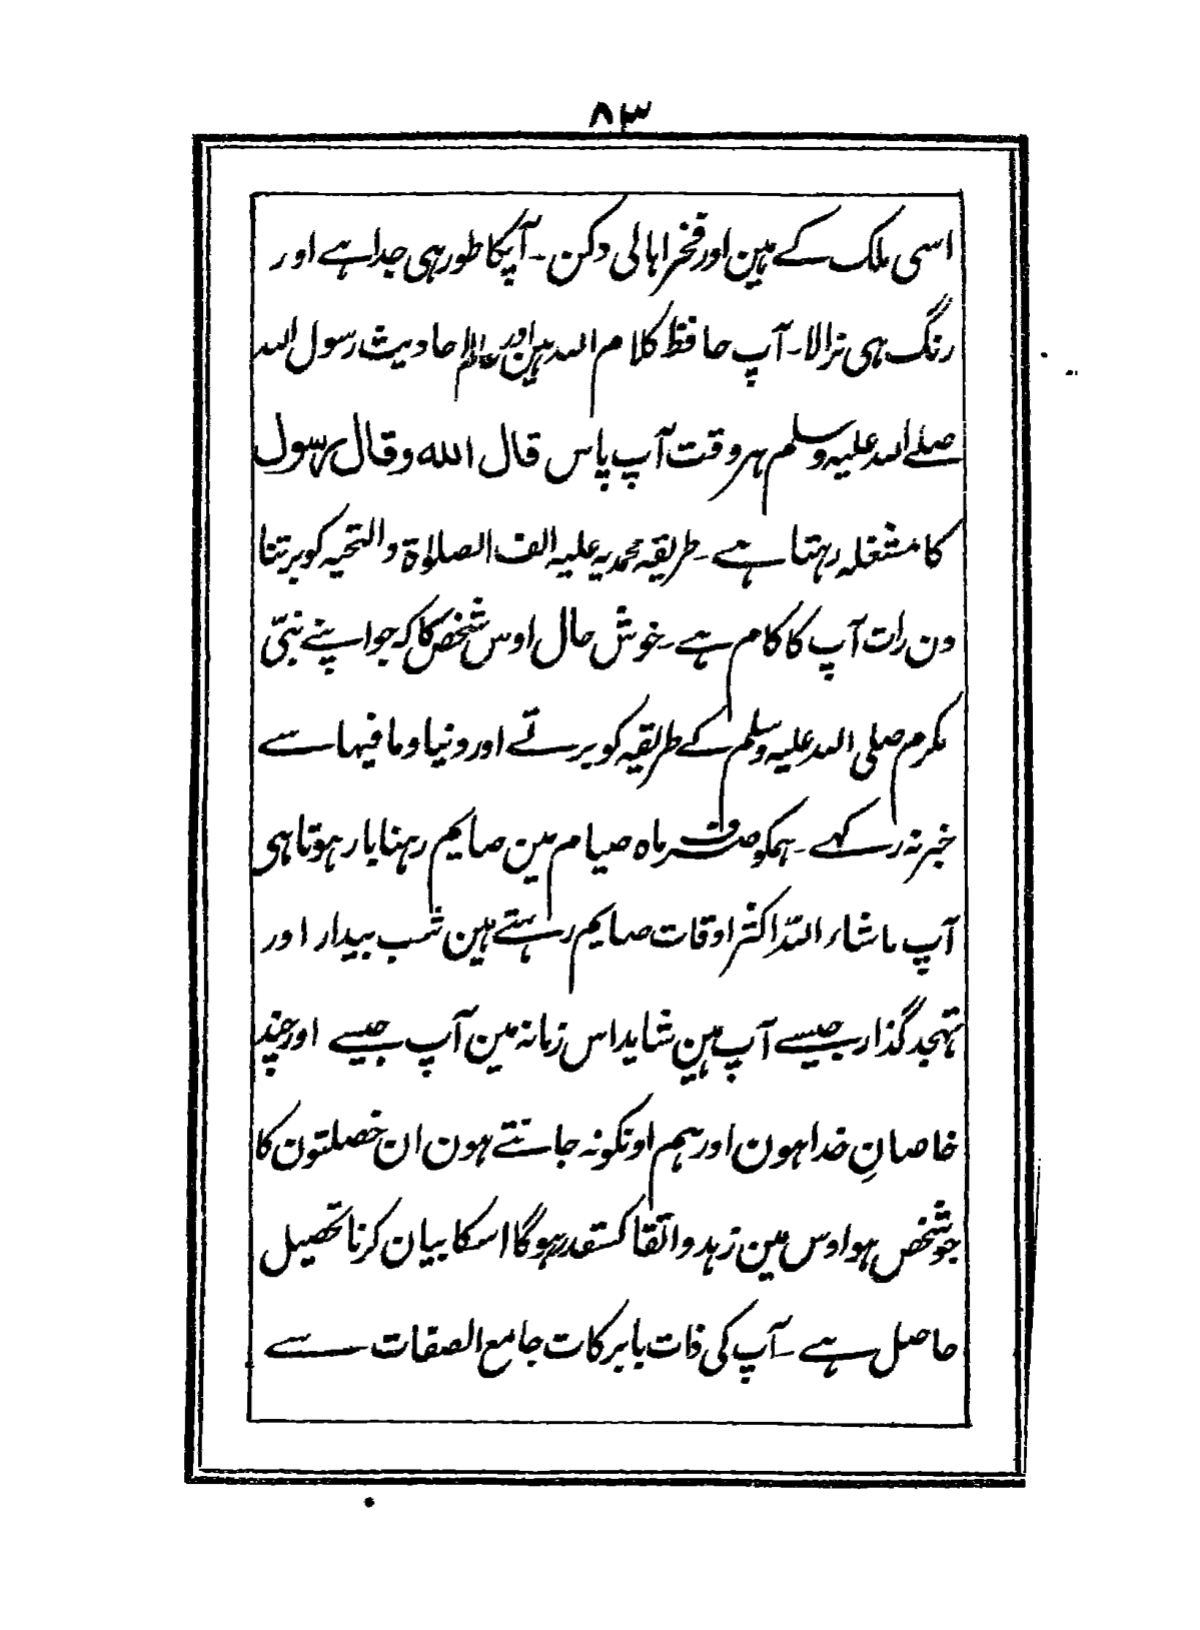 ۸۳
اسی ملک کے ہین اور فخر اہالی دکن ۔ آپکا طور ہی جدا ہے اور
رنگ ہی نرالا ۔ آپ حافظ کلام اللہ ہین اور عالم احادیث رسول اللہ
صلے اللہ علیہ وسلم ہر وقت آپ پاس قال اللہ وقال رسول
کا مشغلہ رہتا ہے ۔ طریقہ محمدیہ علیہ الف الصلاۃ والتحیہ کو برتنا
دن رات آپ کا کام ہے ۔ خوش حال اوس شخص کا کہ جو اپنے نبیّ
مکرم صلی اللہ علیہ وسلم کے طریقہ کو برتے اور دنیا وما فیہا سے
خبر نہ رکہے ۔ ہمکو صرف ماہ صیام مین صایم رہنا بار ہوتا ہی
آپ ماشاء اللّہ اکثر اوقات صایم رہتے ہین شب بیدار اور
تہجد گذار جیسے آپ ہین شاید اس زمانہ مین آپ جیسے اور چند
خاصانِ خدا ہون اور ہم اونکو نہ جانتے ہون ان خصلتون کا
جو شخص ہو اوس مین زہد و اتقا کسقدر ہوگا اسکا بیان کرنا تحصیل
حاصل ہے ۔ آپ کی ذات بابرکات جامع الصفات سے